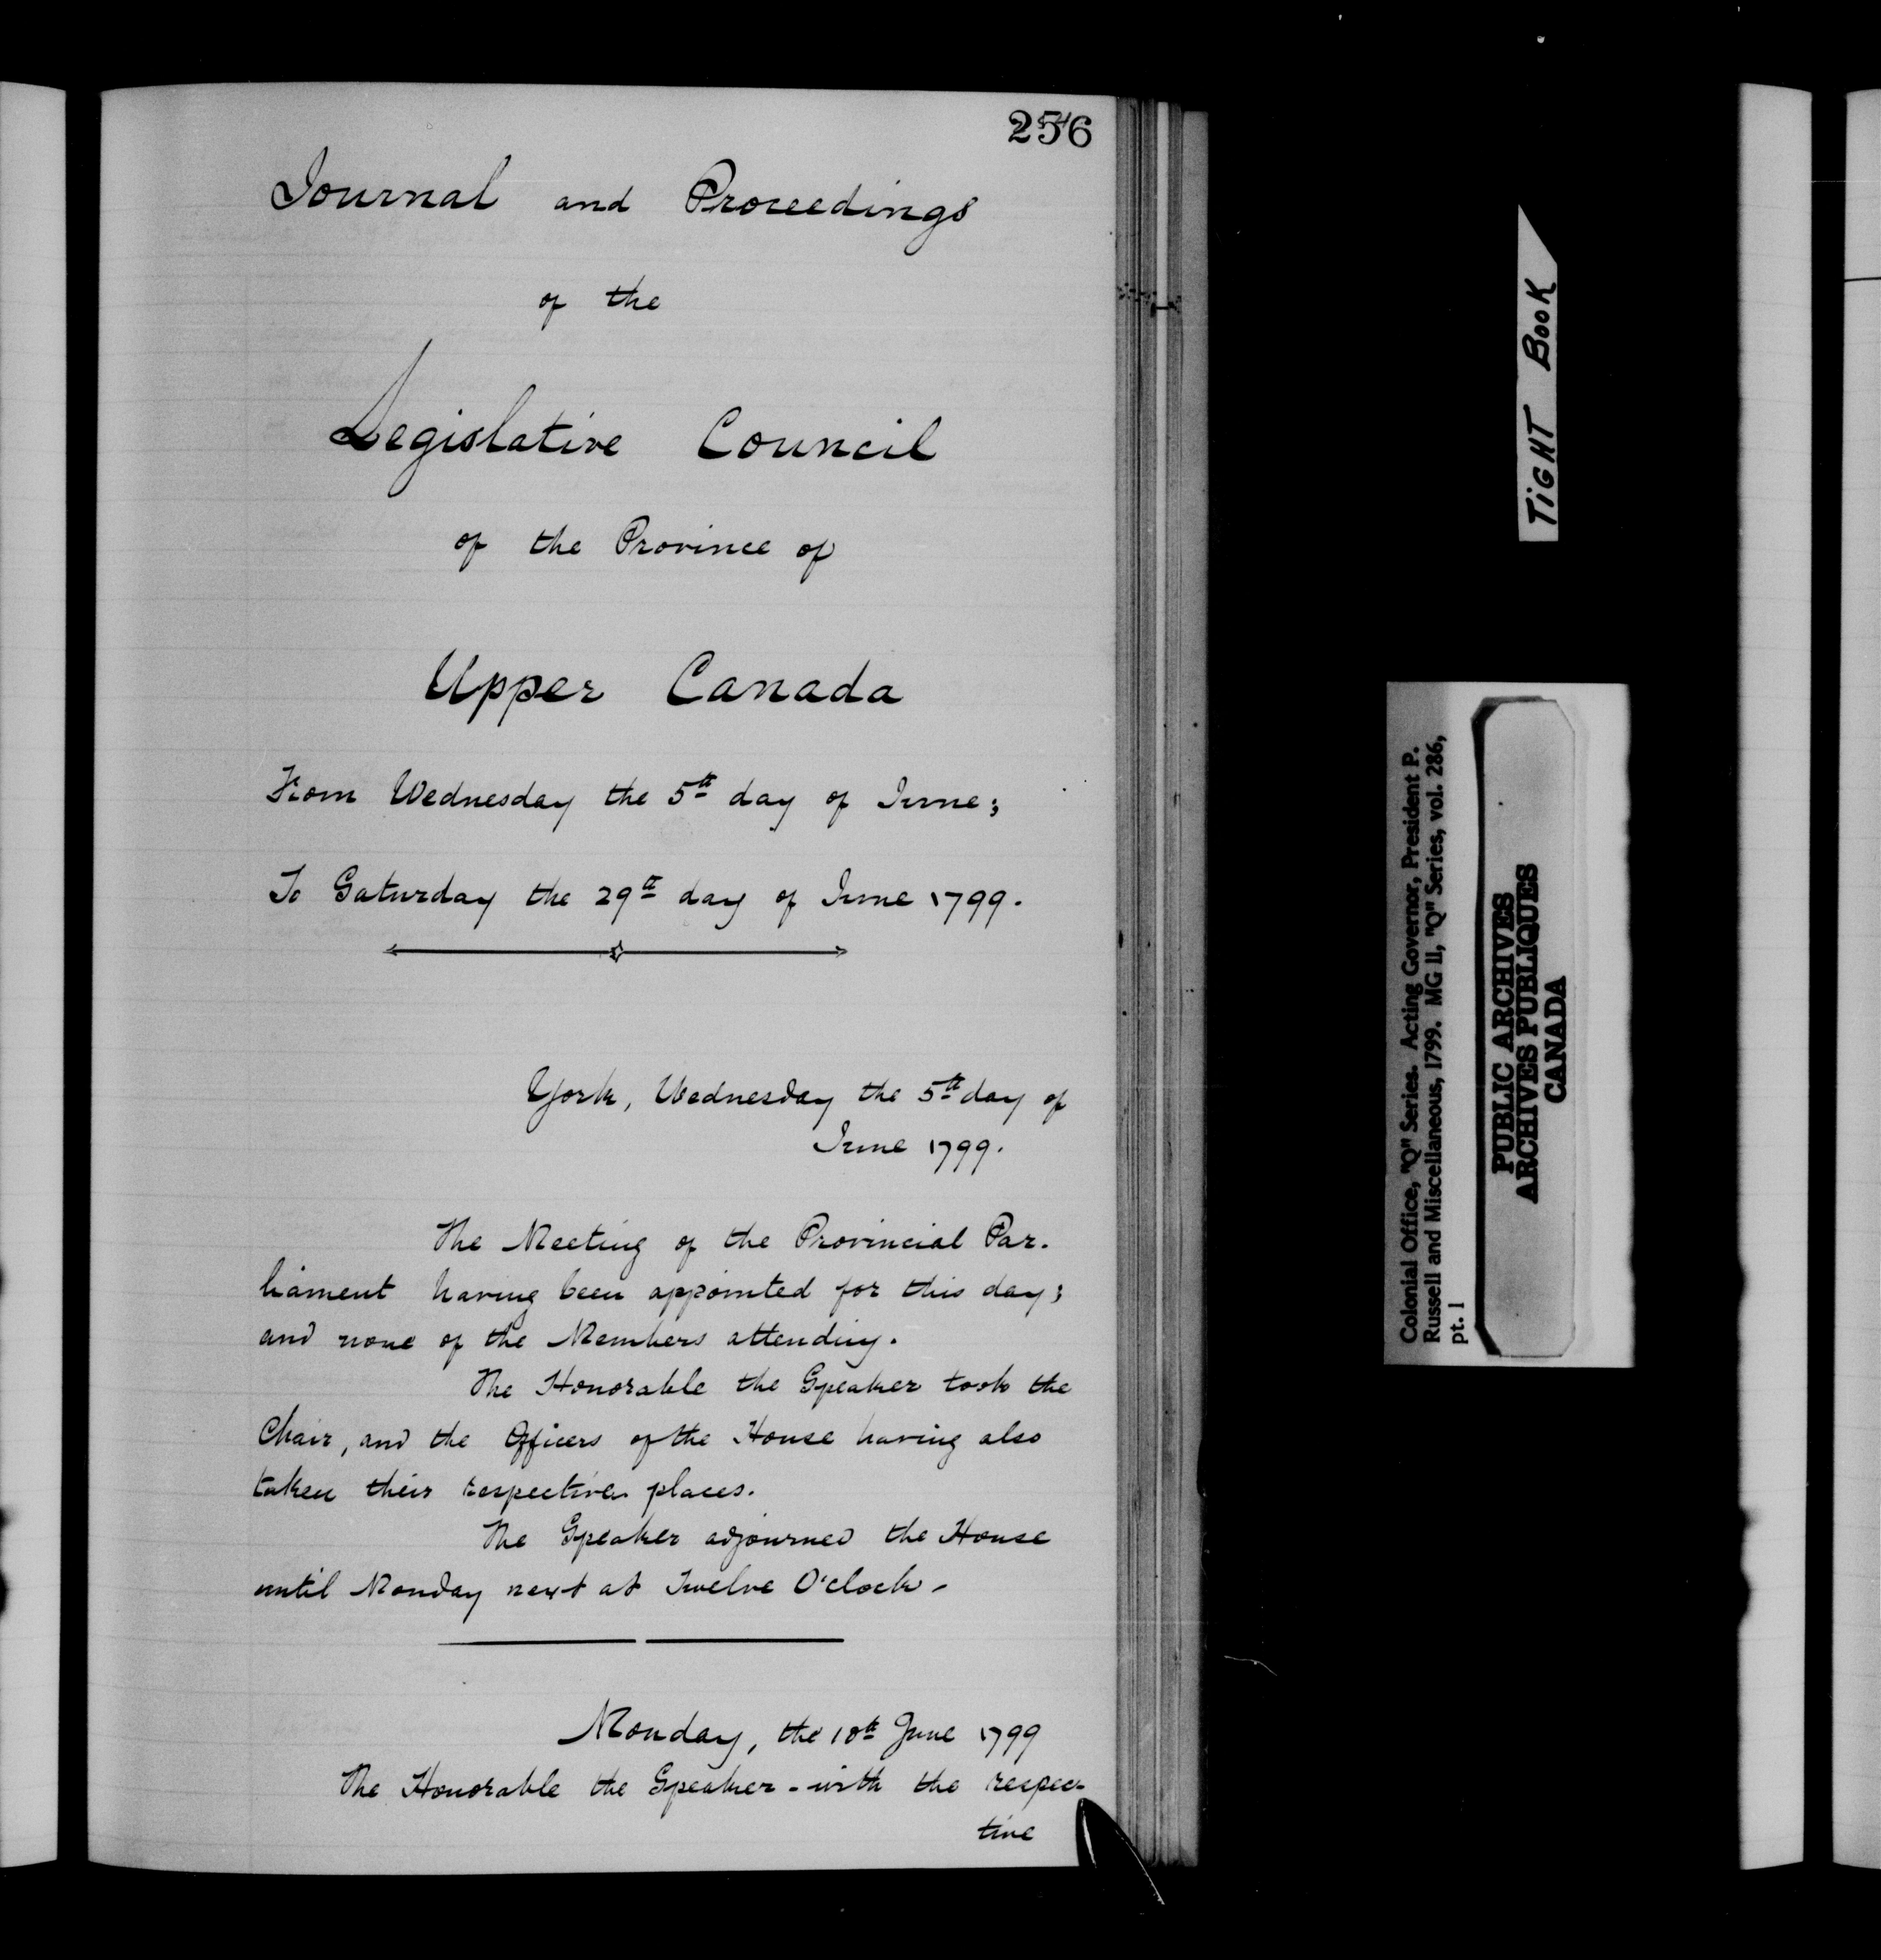 256
Journal and Proceedings
of the
Legislative Council
of the Province of
Upper Canada
From Wednesday the 5th day of June;
To Saturday the 29th day of June 1799.
York, Wednesday the 5th day of
June 1799.
The Meeting of the Provincial Par-
liament having been appointed for this day;
and none of the Members attending.
The Honorable the Speaker took the
Chair, and the Officers of the House having also
taken their respective places.
The Speaker adjourned the House
until Monday next at Twelve O'clock -
Monday, the 10th June 1799
The Honorable the Speaker - with the respec-
tive
TIGHT BOOK
Colonial Office, "Q" Series. Acting Governor, President P.
Russell and Miscellaneous, 1799. MG 11, "Q" Series, vol. 286,
pt. 1
PUBLIC ARCHIVES
ARCHIVES PUBLIQUES
CANADA